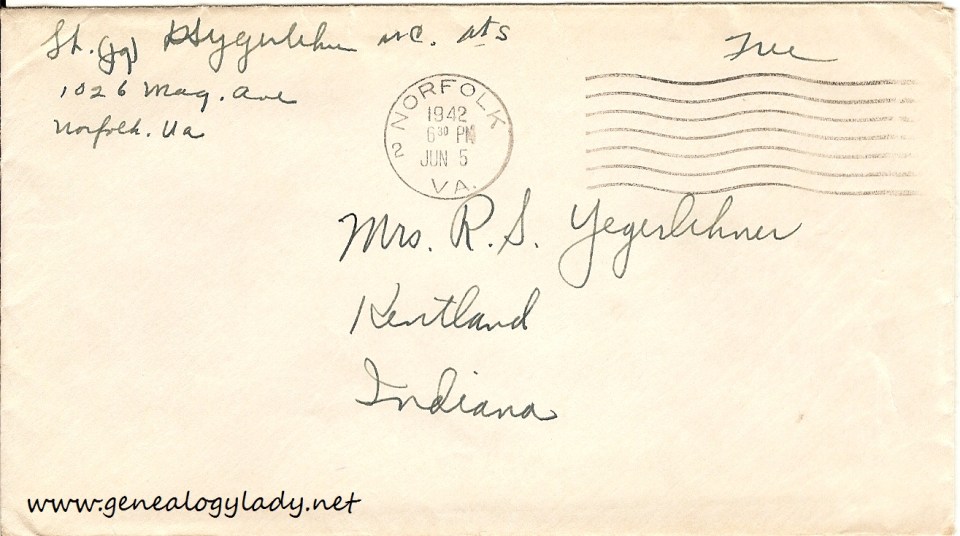 Lt. (jg) RSYegerlehner MC. USNR
Free
1026 Mag. Ave
Norfolk. Va
NORFOLK 2
1942
6 30 PM
JUN 5
VA.
Mrs. R. S. Yegerlehner
Kentland
Indiana
www.genealogylady.net